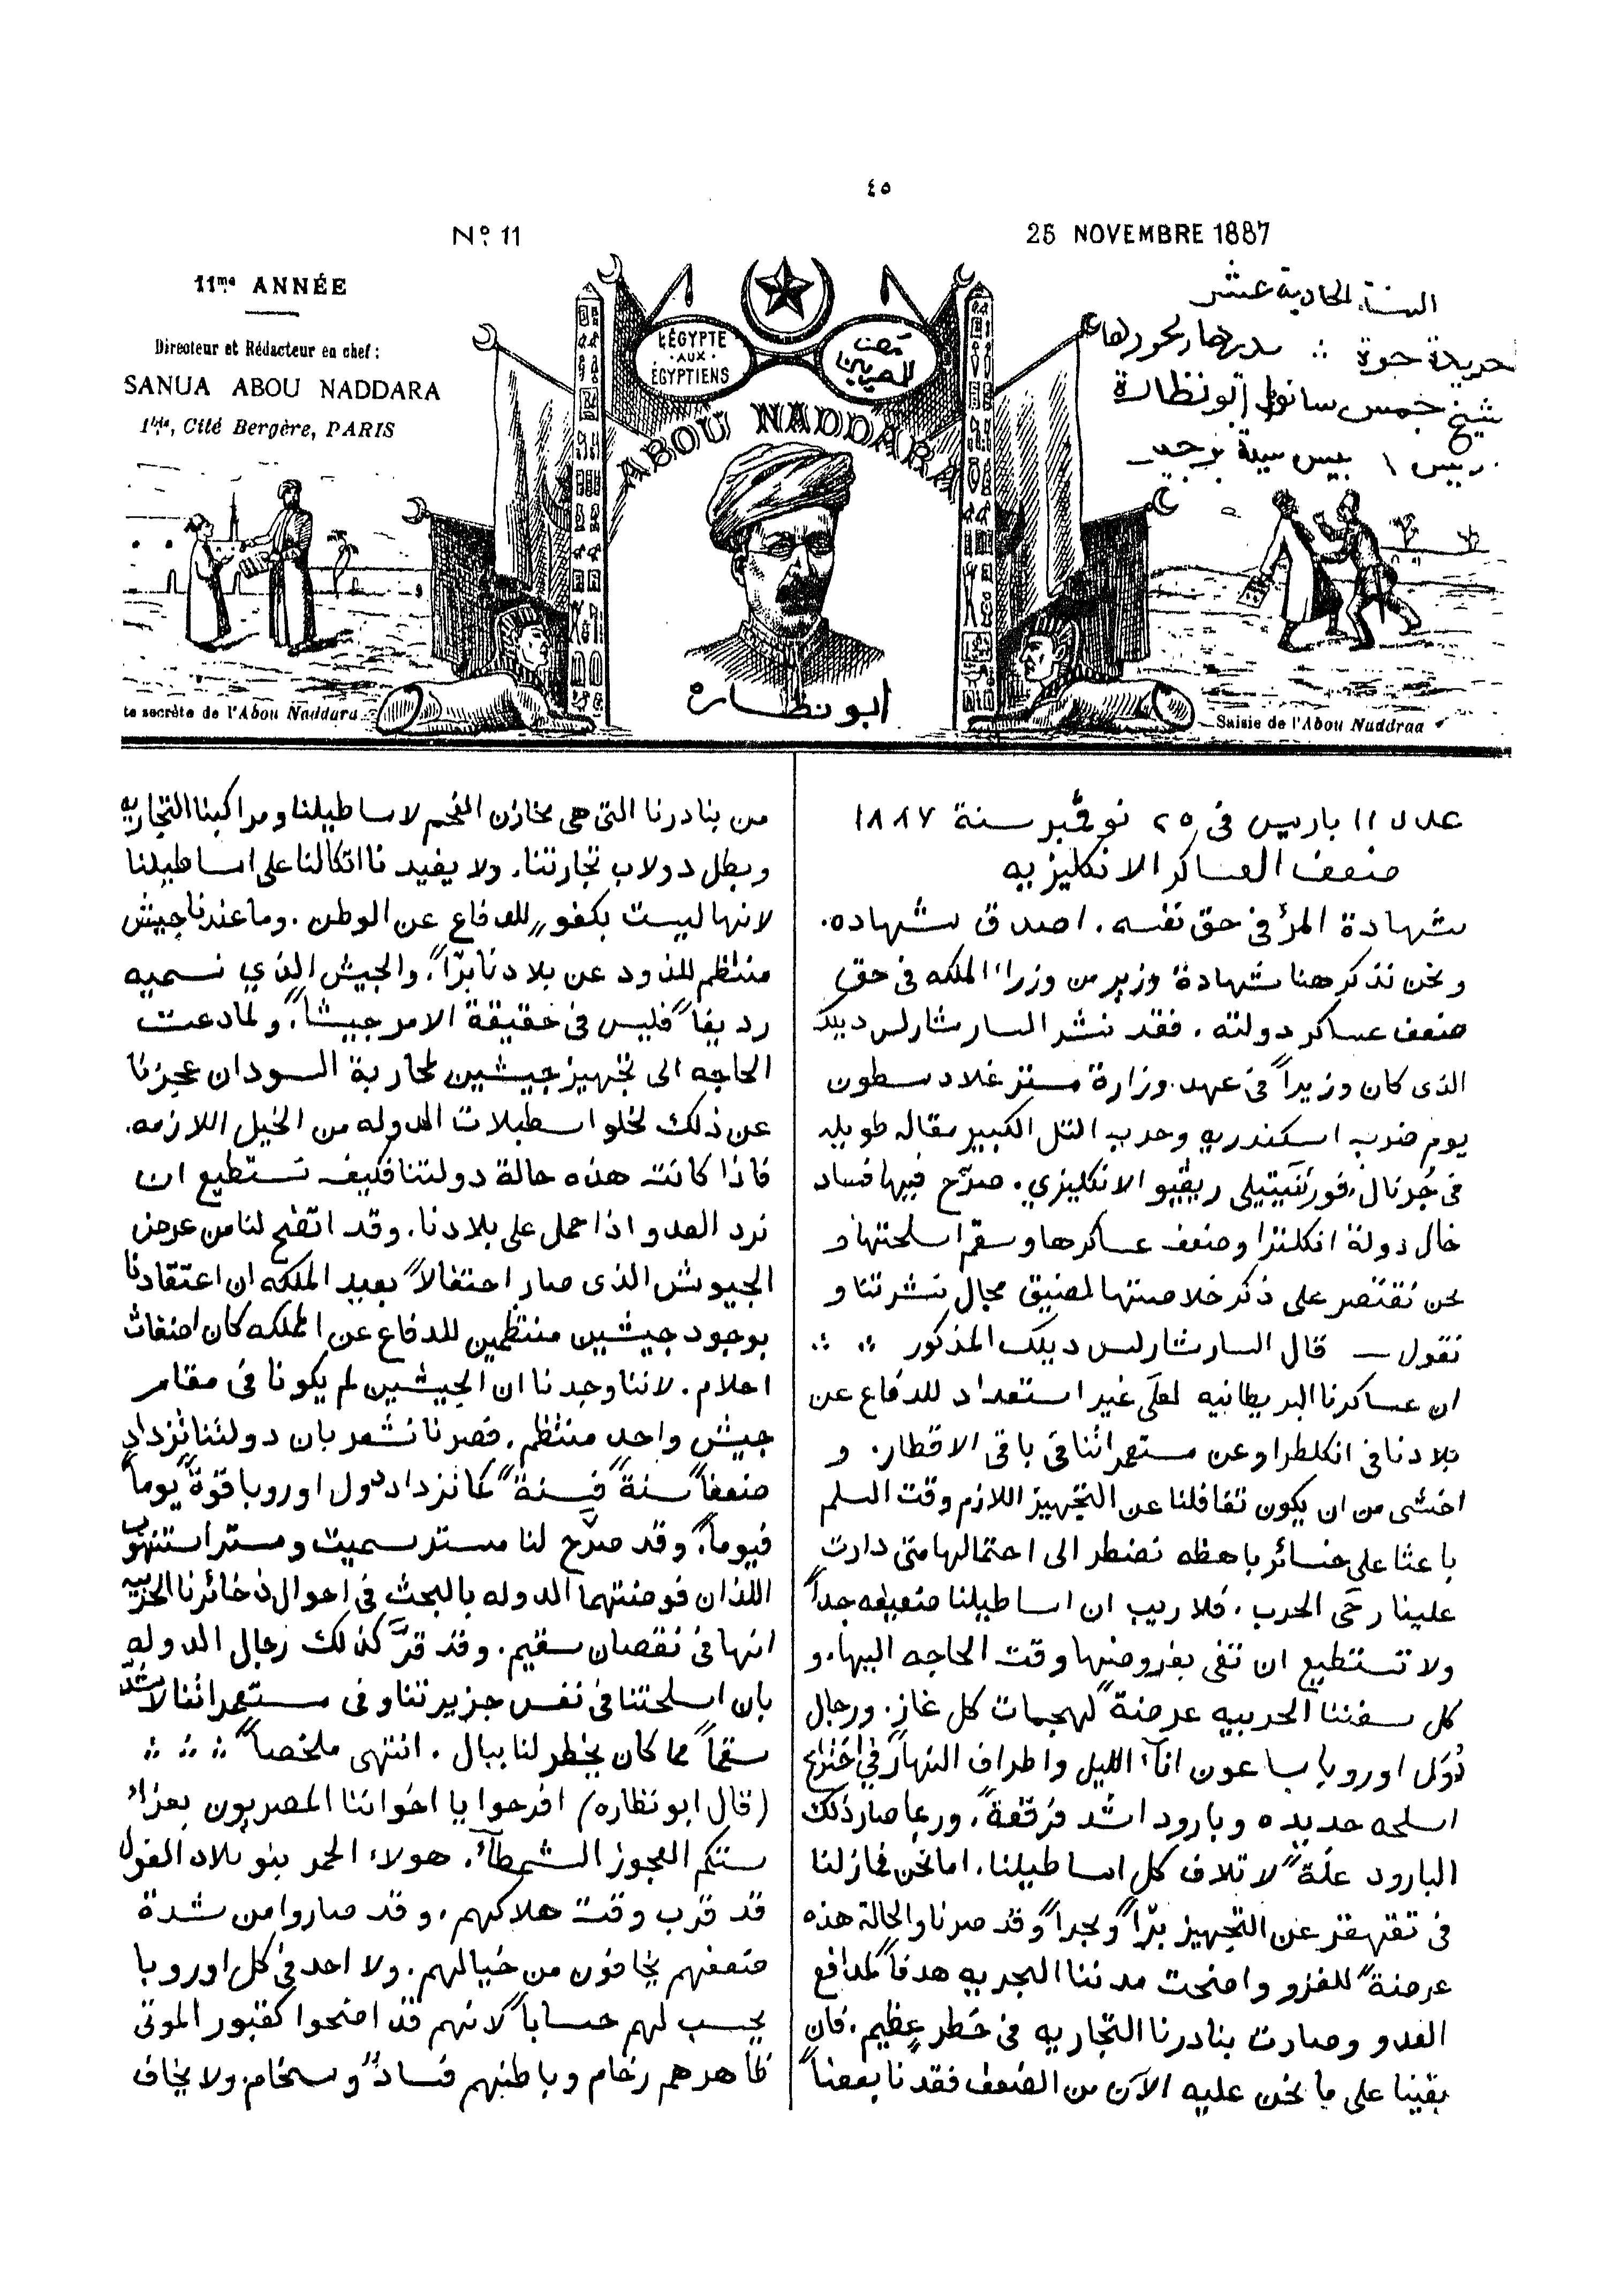 ٤٥
Nº 11
25 NOVEMBRE 1887
11me ANNÉE
Directeur et Rédacteur en chef :
SANUA ABOU NADDARA
1bis, Cité Bergère, PARIS
L'ÉGYPTE
AUX
ÉGYPTIENS
مصر
للمصريين
ABOU NADDARA
السنة الحادية عشر
جريدة حرة ∴ مديرها ومحررها
شيخ جمس سانوا ابو نظارة
ابو نظاره
te secrète de l'Abou Naddara
Saisie de l'Abou Naddraa
عدد ١١ باريس فى ٢٥ نوڤمبر سنة ١٨٨٧
ضعف العساكر الانكليزيه
شهادة المرؤ فى حق نفسه. اصدق شهاده.
ونحن نذكر هنا شهادة وزير من وزراء الملكه فى حق
ضعف عساكر دولته. فقد نشر السار شارلس ديلك
الذى كان وزيراً فى عهد وزارة مستر غلادسطون
يوم ضرب اسكندريه وحرب التل الكبير مقاله طويله
فى جُرنال فورتنيتيلى ريڤيو الانكليزي. صرّح فيها فساد
حال دولة انكلترا وضعف عساكرها وسقم اسلحتها و
نحن نقتصر على ذكر خلاصتها لضيق مجال نشرتنا و
نقول — قال السار شارلس ديلك المذكور ∴ ∴
ان عساكرنا البريطانيه لعلى غير استعداد للدفاع عن
بلادنا فى انكلطرا وعن مستعمراتنا فى باقى الاقطار. و
اخشى من ان يكون تغافلنا عن التجهيز اللازم وقت السلم
باعثا على خسائر باهظه نضطر الى احتمالها متى دارت
علينا رحى الحرب. فلا ريب ان اساطيلنا ضعيفه جداً
ولا تستطيع ان تفى بفروضها وقت الحاجه اليها. و
كل سفننا الحربيه عرضة لهجمات كل غازٍ. ورجال
دُوَل اوروبا ساعون اناء الليل واطراف النهار فى اختراع
اسلحه جديده وبارود اشد فرقعة. وربما صار ذلك
البارود علّة لاتلاف كل اساطيلنا. اما نحن فمازلنا
فى تقهقر عن التجهيز برّاً وبحراً وقد صرنا والحالة هذه
عرضة للغزو واضحت مدننا البحريه هدفاً لمدافع
العدو وصارت بنادرنا التجاريه فى خطر عظيم. فان
بقينا على ما نحن عليه الآن من الضعف فقدنا بعضاً
من بنادرنا التى هى مخازن الفحم لاساطيلنا ومراكبنا التجاريه
وبطل دولاب تجارتنا. ولا يفيدنا اتكالنا على اساطيلنا
لانها ليست بكفوٍ للدفاع عن الوطن. وما عندنا جيش
منتظم للذود عن بلادنا برّاً. والجيش الذي نسميه
رديفاً فليس فى حقيقة الامر جيشاً. ولما دعت
الحاجه الى تجهيز جيشين لمحاربة السودان عجزنا
عن ذلك لخلو اسطبلات الدوله من الخيل اللازمه.
فاذا كانت هذه حالة دولتنا فكيف نستطيع ان
نرد العدو اذا حمل على بلادنا. وقد اتضح لنا من عرض
الجيوش الذى صار احتفالاً بعيد الملكه ان اعتقادنا
بوجود جيشين منتظمين للدفاع عن المملكه كان اضغاث
احلام. لاننا وجدنا ان الجيشين لم يكونا فى مقام
جيش واحد منتظم. فصرنا نشعر بان دولتنا تزداد
ضعفاً سنة فسنة كما تزداد دول اوروبا قوّة يوماً
فيوماً. وقد صرّح لنا مستر سميت ومستر استنهوب
اللذان فوضتهما الدوله بالبحث فى احوال ذخائرنا الحربيه
انها فى نقصان سقيم. وقد قرَّ كذلك رجال الدوله
بان اسلحتنا فى نفس جزيرتنا وفى مستعمراتنا لاشدّ
سقماً مما كان يخطر لنا ببال. انتهى ملخصاً ∴ ∴ ∴
(قال ابو نظاره) افرحوا يا اخواننا المصريون بعزاء
ستكم العجوز الشمطآء. هولاء الحمر بنو بلاد الغول
قد قرب وقت هلاكهم. وقد صاروا من شدة
ضعفهم يخافون من خيالهم. ولا احد فى كل اوروبا
يحسب لهم حساباً لانهم قد اضحوا كقبور الموتى
ظاهرهم رخام وباطنهم فساد وسخام. ولا يخاف